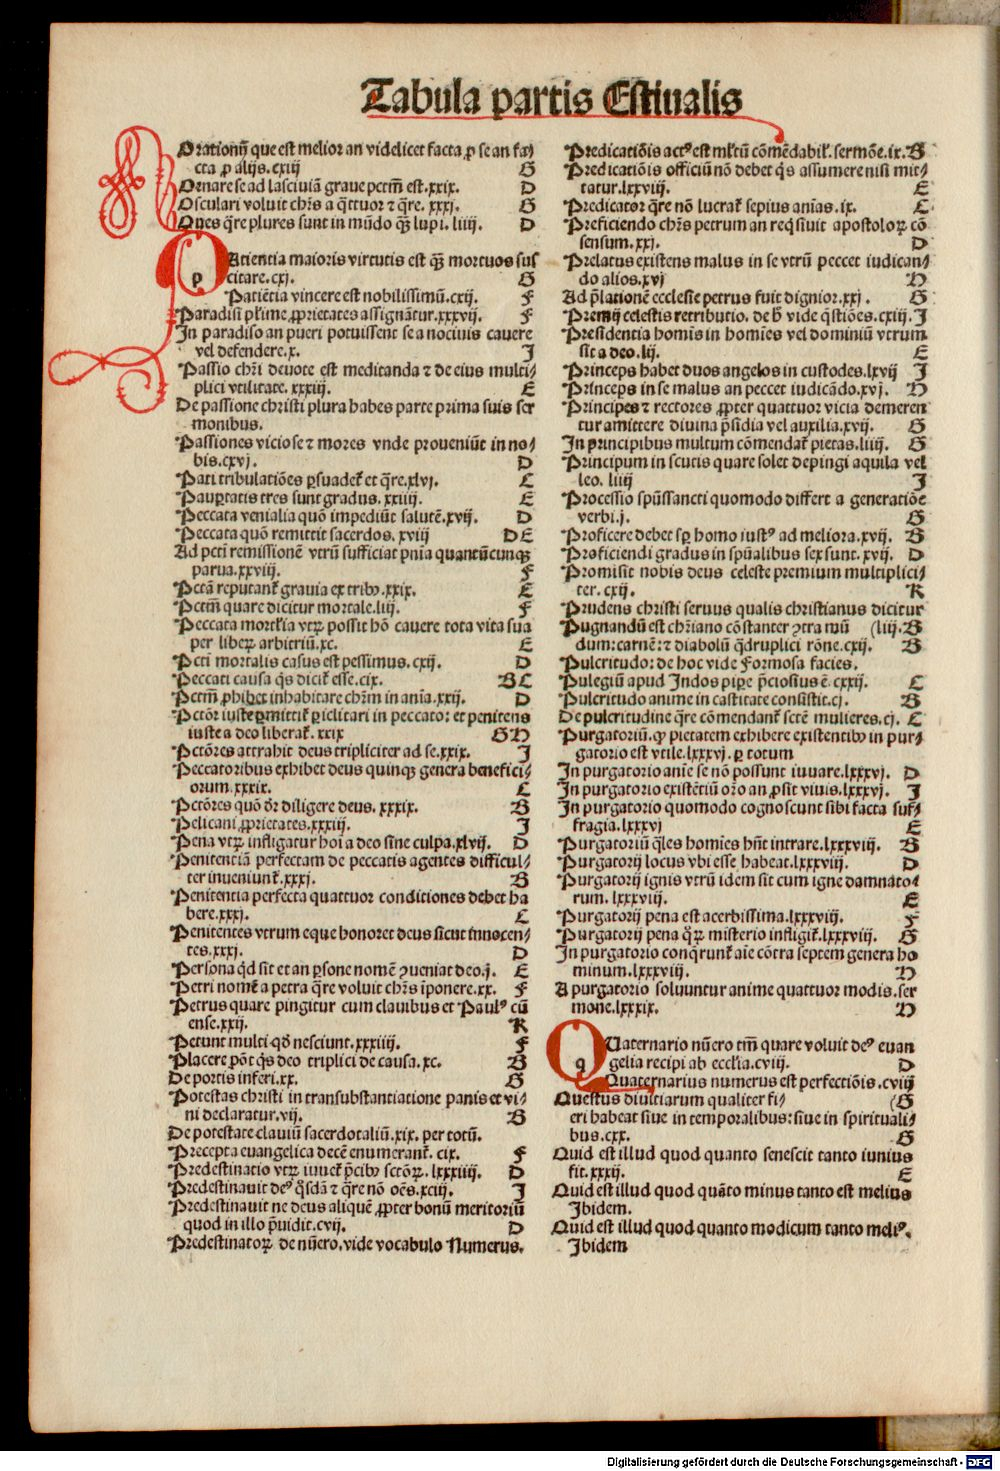 Tabula partis Estiualis
Orationū que est melior an videlicet facta ꝓ se an fa⸗
cta ꝓ alijs.cxiij G
Ornare se ad lasciuiā graue pctm̄ est.xxix. D
Osculari voluit chr̄s a q̄ttuor ⁊ q̄re. xxxj. G
Oues q̄re plures sunt in mūdo q̄ꝫ lupi. liiij. D
PAtientia maioris virtutis est q̄ꝫ mortuos sus
citare.cxj. G
Patiētia vincere est nobilissimū.cxij. F
Paradisi pl'ime ꝓprietates assignātur.xxxvij. F
In paradiso an pueri potuissent se a nociuis cauere
vel defendere.x. J
Passio chr̄i deuote est meditanda ⁊ de eius multi⸗
plici vtilitate. xxxiij. E
De passione christi plura habes parte prima suis ser
monibus.
Passiones viciose ⁊ mores vnde proueniūt in no⸗
bis.cxvj. D
Pati tribulatiōes ꝑsuadet̄ et q̄re.xlvj. C
Pauꝑtatis tres sunt gradus. xxiiij. E
Peccata venialia quō impediūt salutē.xvij. D
Peccata quō remittit sacerdos. xviij D E
Ad pcti remissionē vtrū sufficiat pn̄ia quantūcunqꝫ
parua.xxviij. F
Pctā reputant̄ grauia ex tribꝰ.xxix. E
Pctm̄ quare dicitur mortale.liij. F
Peccata mortl'ia vtꝝ possit hō cauere tota vita sua
per liberꝝ arbitriū.xc. E
Pcti mortalis casus est pessimus.cxij. D
Peccati causa q̄s dicit̄ esse.cix. B C
Pctm̄ ꝓhibet inhabitare chr̄m in aīa.xxij. D
Pctōr iuste ꝑmittit̄ ꝑiclitari in peccato: et penitens
iuste a deo liberat̄. xxix G H
Pctōres attrahit deus tripliciter ad se.xxix. J
Peccatoribus exhibet deus quinqꝫ genera benefici⸗
orum.xxxix. C
Pctōres quō d̄r diligere deus. xxxix. B
Pelicani ꝓprietates.xxxiij. J
Pena vtꝝ infligatur hoī a deo sine culpa.xlvij. D
Penitentiā perfectam de peccatis agentes difficul⸗
ter inueniunt̄.xxxj. B
Penitentia perfecta quattuor conditiones debet ha
bere.xxxj. C
Penitentes vtrum eque honoret deus sicut innocen⸗
tes.xxxj. D
Persona q̄d sit et an ꝑsone nomē ꝯueniat deo.j. E
Petri nomē a petra q̄re voluit chr̄s īponere.xx. F
Petrus quare pingitur cum clauibus et Paulꝰ cū
ense.xxij. K
Petunt multi qd̄ nesciunt.xxxiiij. F
Placere pōt q̄s deo triplici de causa.xc. B
De portis inferi.xx. G
Potestas christi in transubstantiatione panis et vi⸗
ni declaratur.vij. B
De potestate clauiū sacerdotaliū.xix. per totū.
Precepta euangelica decē enumerant̄. cix. F
Predestinatio vtꝝ iuuet̄ p̄cibꝰ sctōꝝ.lxxxiiij. D
Predestinauit deꝰ q̄sdā ⁊ q̄re nō oēs.xciij. J
Predestinauit ne deus aliquē ꝓpter bonū meritoriū
quod in illo p̄uidit.cvij. D
Predestinatoꝝ de nūero, vide vocabulo Numerus.
Predicatiōis actꝰ est ml'tū cōmēdabil'. sermōe.ix. B
Predicatiōis officiū nō debet q̄s assumere nisi mit⸗
tatur.lxxviij. E
Predicator q̄re nō lucrat̄ sepius aīas.ix. C
Preficiendo chr̄s petrum an req̄siuit apostoloꝝ cō
sensum.xxj. D
Prelatus existens malus in se vtrū peccet iudican⸗
do alios.xvj H
Ad p̄lationē ecclesie petrus fuit dignior.xxj. G
Premij celestis retributio. de h̄ vide q̄stiōes.cxiij. J
Presidentia homīs in homīes vel dominiū vtrum
sit a deo.lij. E
Princeps habet duos angelos in custodes.lxvij J
Princeps in se malus an peccet iudicādo.xvj. H
Principes ⁊ rectores ꝓpter quattuor vicia demeren
tur amittere diuina p̄sidia vel auxilia.xvij. G
In principibus multum cōmendat̄ pietas.liiij. G
Principum in scutis quare solet depingi aquila vel
leo. liiij J
Processio spūssancti quomodo differt a generatiōe
verbi.j. G
Proficere debet sꝑ homo iustꝰ ad meliora.xvij. B
Proficiendi gradus in spūalibus sex sunt. xvij. D
Promisit nobis deus celeste premium multiplici⸗
ter. cxij. K
Prudens christi seruus qualis christianus dicitur
Pugnandū est chr̄iano cōstanter ꝯtra mū (liij. B
dum: carnē: ⁊ diabolū q̄druplici rōne.cxij. B
Pulcritudo: de hoc vide Formosa facies.
Pulegiū apud Indos piꝑe p̄ciosius ē.cxxij. C
Pulcritudo anime in castitate consistit.cj. B
De pulcritudine q̄re cōmendant̄ sctē mulieres.cj. C
Purgatoriū. ꝙ pietatem exhibere existentibꝰ in pur⸗
gatorio est vtile.lxxxvj. ꝑ totum
In purgatorio aīe se nō possunt iuuare.lxxxvj. D
In purgatorio existētiū or̄o an ꝓsit viuis.lxxxvj. J
In purgatorio quomodo cognoscunt sibi facta suf⸗
fragia.lxxxvj E
Purgatoriū q̄les homīes hn̄t intrare.lxxxviij. B
Purgatorij locus vbi esse habeat.lxxxviij. D
Purgatorij ignis vtrū idem sit cum igne damnato⸗
rum. lxxxviij. E
Purgatorij pena est acerbissima.lxxxviij. F
Purgatorij pena q̄ꝝ misterio infligit̄.lxxxviij. G
In purgatorio conq̄runt̄ aīe cōtra septem genera ho
minum.lxxxviij. H
A purgatorio soluuntur anime quattuor modis.ser
mone.lxxxix. H
QUaternario nūero tm̄ quare voluit deꝰ euan
gelia recipi ab eccl'ia.cviij. D
Quaternarius numerus est perfectiōis.cviij
Questus diuitiarum qualiter fi⸗ (G
eri habeat siue in temporalibus: siue in spirituali⸗
bus.cxx. G
Quid est illud quod quanto senescit tanto iunius
fit.xxxij. E
Quid est illud quod quāto minus tanto est melius
Ibidem.
Quid est illud quod quanto modicum tanto meliꝰ.
Ibidem
Digitalisierung gefördert durch die Deutsche Forschungsgemeinschaft - DFG